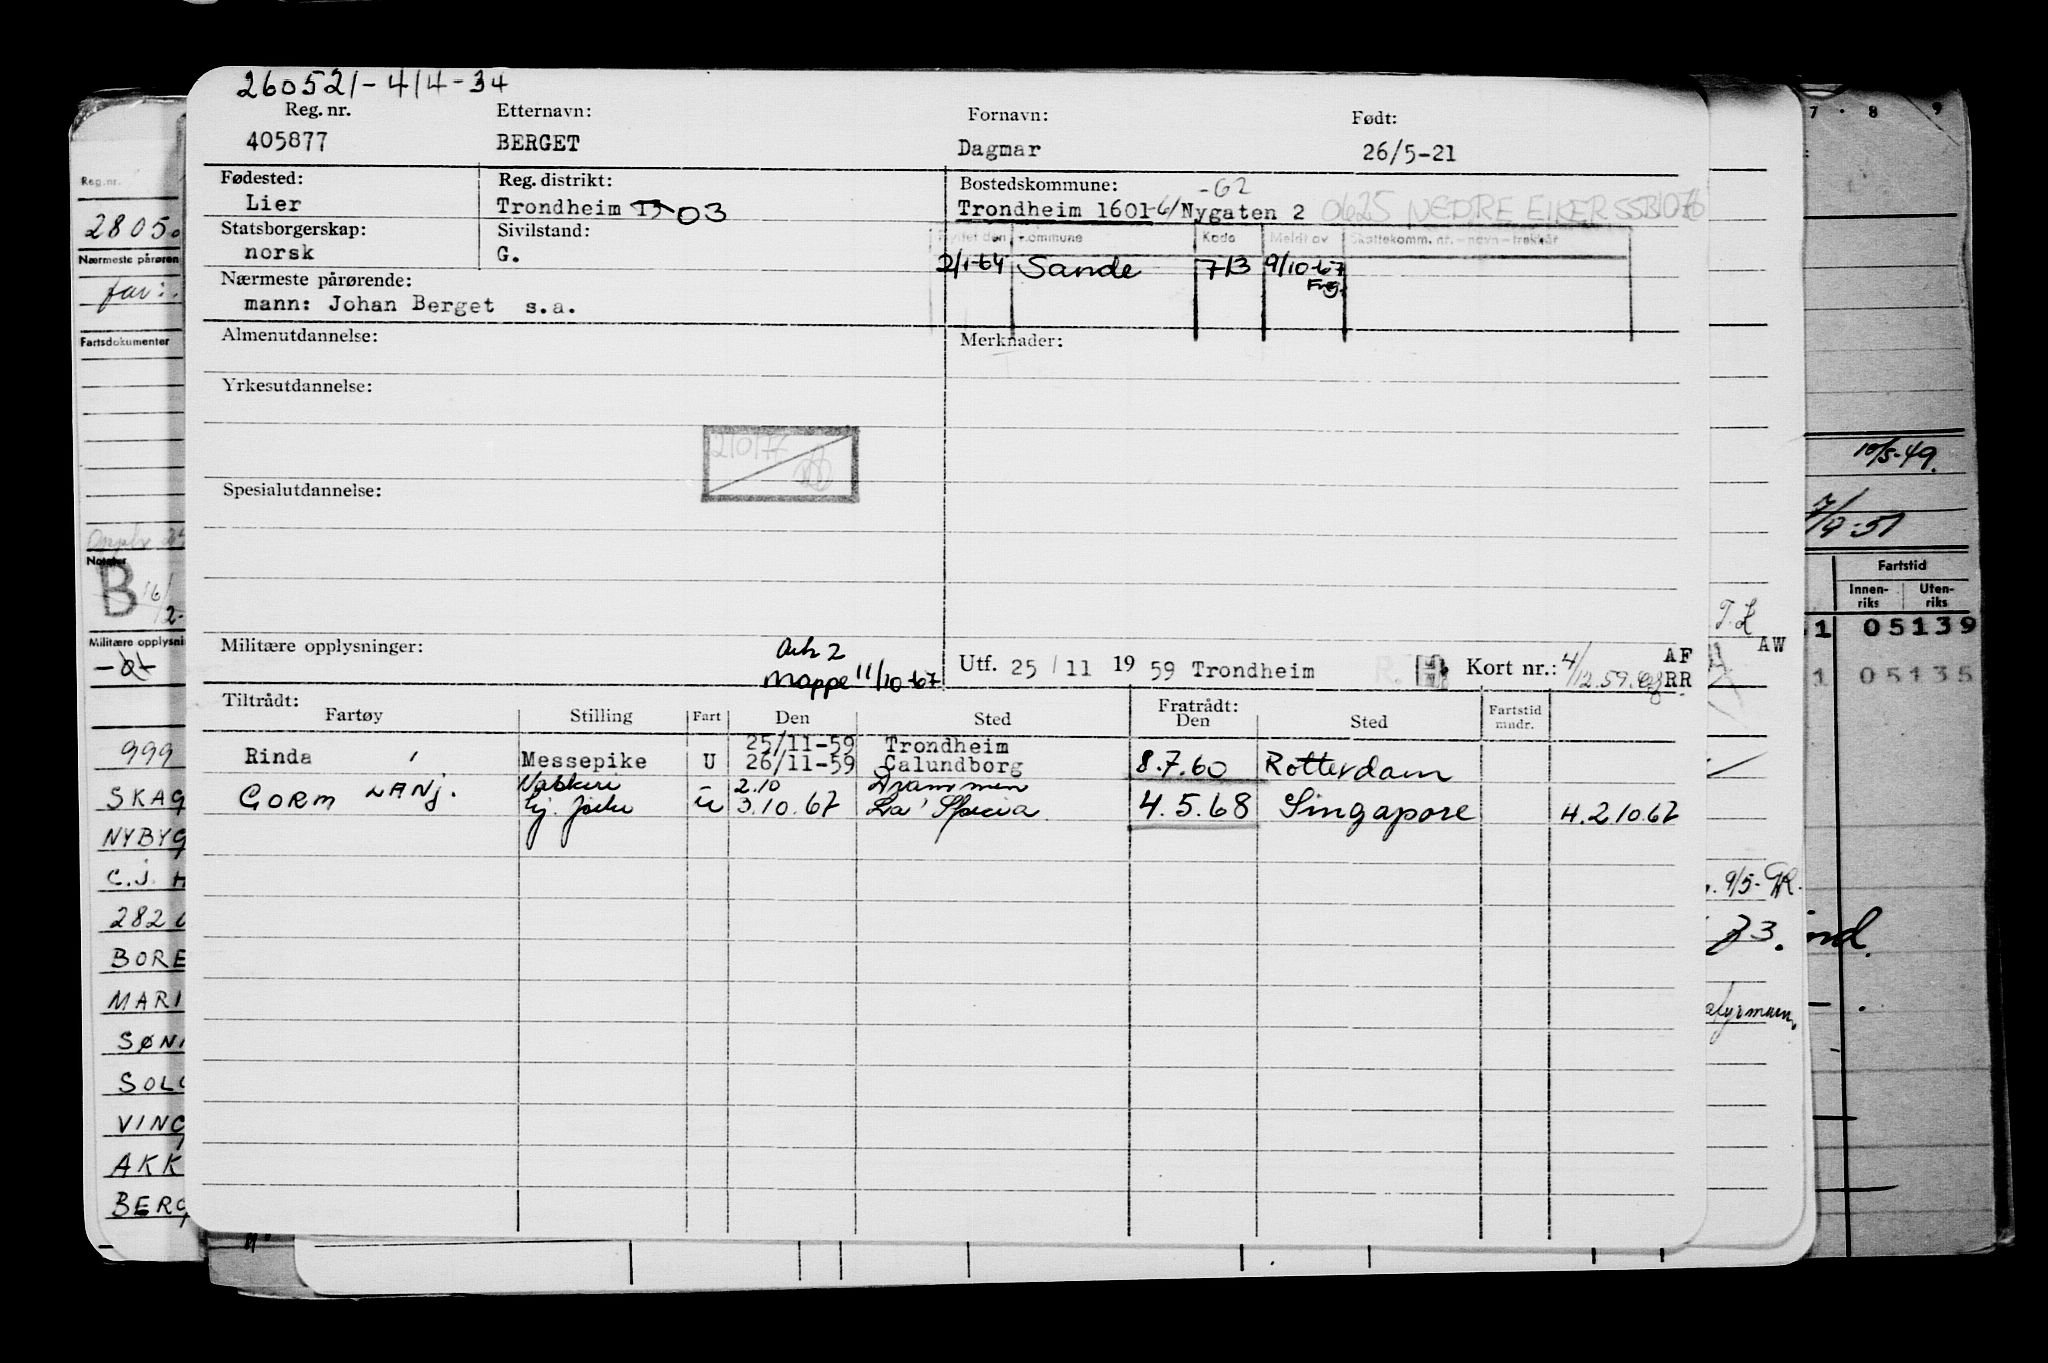 260521-414-34
Reg. nr. Etternavn: Fornavn: Født:
405877 BERGET Dagmar 26/5-21
Fødested: Reg. distrikt: Bostedskommune: -62
Lier Trondheim 03 Trondheim 1601-61 Nygaten 2 0625 NEDRE EIKER SSB1076
Statsborgerskap: Sivilstand: Flyttet den Kommune Kode Meldt av Skattekomm. nr. - navn - trekkår
norsk G. 2/1-64 Sande 713 9/10-67
Frg.
Nærmeste pårørende:
mann: Johan Berget s.a.
Almenutdannelse: Merknader:
Yrkesutdannelse:
Spesialutdannelse:
Militære opplysninger: Ark 2
Mappe 11/10-67
Utf. 25/11 1959 Trondheim Kort nr.: 4/12.59. AF
RR
Tiltrådt: Fratrådt:
Fartøy Stilling Fart Den Sted Den Sted Fartstid mndr.
25/11-59 Trondheim
Rinda Messepike U 26/11-59 Calundborg 8.7.60 Rotterdam
2.10 Drammen
GORM LANJ. U 3.10.67 La Spezia 4.5.68 Singapore H.2 10.67
Reg.nr.
2805
Nærmeste pårøren
far:
Fartsdokumenter
Notater
B
2-
Militære opplysni
999
SKAG
NYBYG
C.J. H
282
BORE
MARI
SØN
SOLG
VING
AKK
BERG
7 8 9
10/5-49.
7/9-51
Fartstid
Innen-
riks
Uten-
riks
1 05139
T.L
AW
1 05135
9/5-
73.